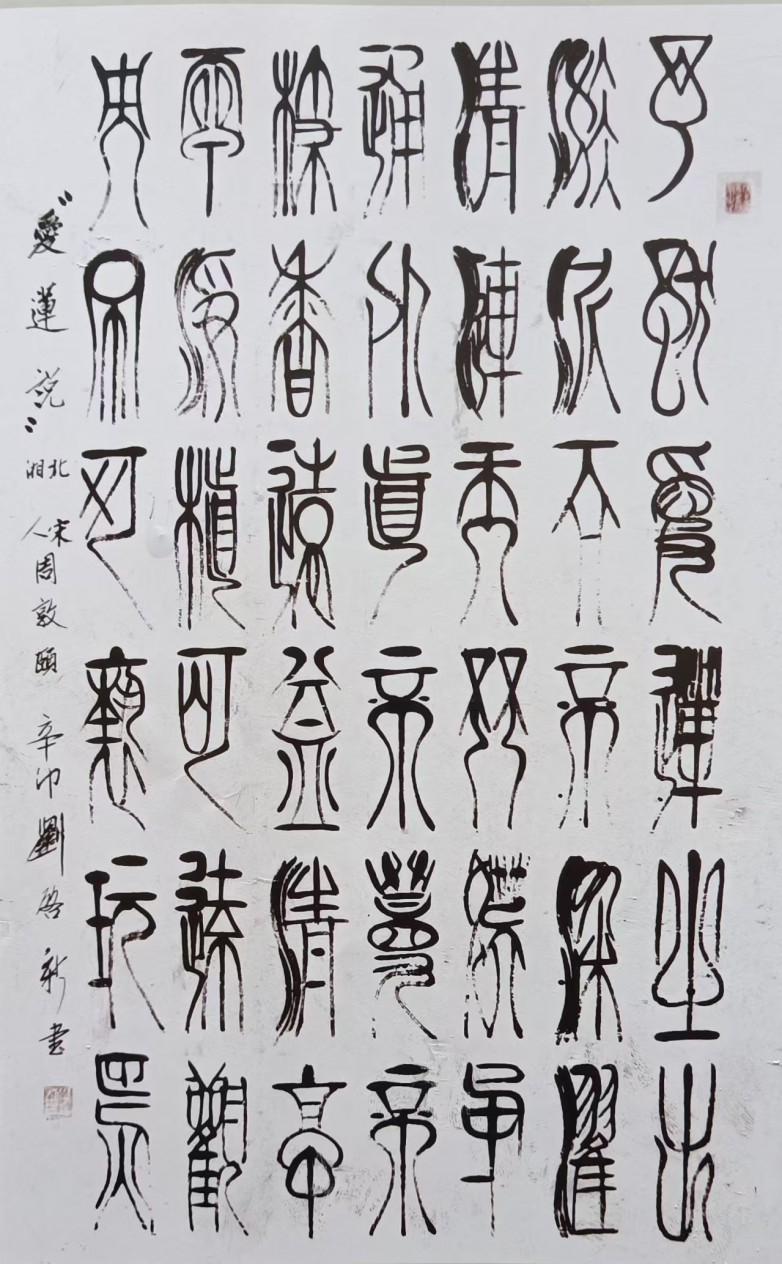 予獨愛蓮之出
淤泥而不染濯
清漣而不妖中
通外直不蔓不
枝香遠益清亭
亭淨植可遠觀
而不可褻玩焉
"愛蓮説"北宋湘人周敦頤 辛卯劉啓新書